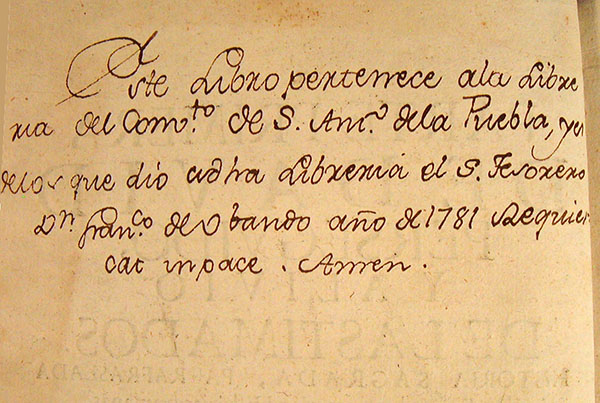 Este Libro pertenece ala Libre
ria del Comv.to de S. Ant.o dela Puebla, yes
delos que dió adha Libreria el S. Tesorero
Dn Fran.co de Obando año de 1781 Requies
cat in pace. Amen.
Y ALIVIO
DE LASTIMADOS
HISTORIA SAGRADA, PARAFRASEADA